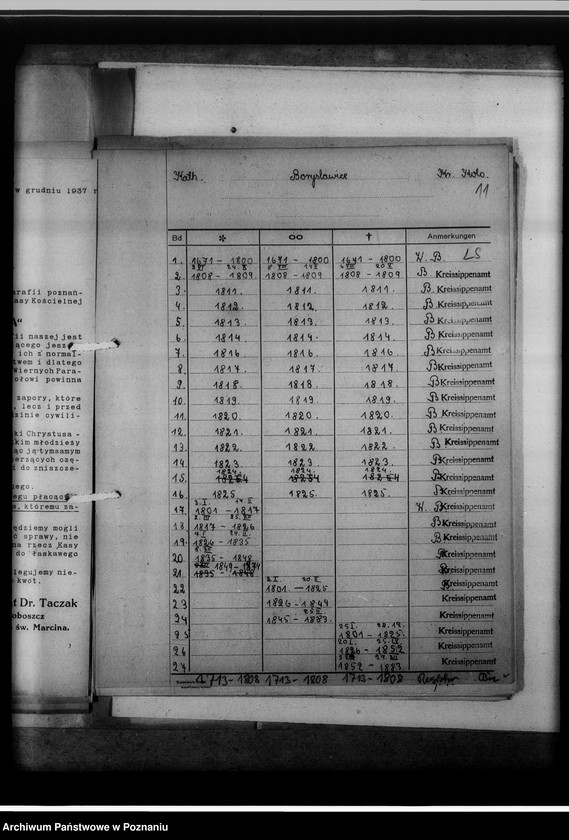 w grudniu 1937 r
arafii poznań-
asy Kościelnej
A“
ii naszej jest
ącego jeszc
ich z normal-
twem i dlatego
Wiernych Para-
ołowi powinna
zapory, które
, lecz i przed
zinie cywili-
ki Chrystusa -
kim młodzieży
do zniszcze-
ego.
egu płacąc
a, któremu za-
ędziemy mogli
ć sprawy, nie
na rzecz Kasy
do łaskawego
legujemy nie-
kwot.
f Dr. Taczak
oboszcz
św. Marcina.
Kath. Borysławice Kr. Koło.
11
Bd * ∞ † Anmerkungen
1. 1671 - 1800 1671 - 1800 1671 - 1800 K. B. LS
2. 1808 - 1809 1808 - 1809 1808 - 1809 B Kreissippenamt
3. 1811. 1811. 1811. B Kreissippenamt
4. 1812. 1812. 1812. B Kreissippenamt
5. 1813. 1813. 1813. B Kreissippenamt
6. 1814 1814. 1814. B Kreissippenamt
7. 1816 1816. 1816. B Kreissippenamt
8. 1817. 1817. 1817. B Kreissippenamt
9. 1818. 1818. 1818. B Kreissippenamt
10. 1819. 1819. 1819. B Kreissippenamt
11. 1820 1820. 1820. B Kreissippenamt
12. 1821. 1821. 1821. B Kreissippenamt
13. 1822. 1822 1822. B Kreissippenamt
14 1823 1823. 1823. B Kreissippenamt
15. 1824. 1824. 1824. B Kreissippenamt
16. 1825. 1825. 1825. B Kreissippenamt
17. 1801 - 1817 K. B Kreissippenamt
18. 1817 - 1826 B Kreissippenamt
19. 1826 - 1835 B Kreissippenamt
20 1835 - 1848 Kreissippenamt
21. 1849 - 1874 Kreissippenamt
1835 - 1848
22 1801 - 1825 Kreissippenamt
23 1826 - 1844 Kreissippenamt
24 1845 - 1883. Kreissippenamt
25 1801 - 1825. Kreissippenamt
26 1826 - 1852 Kreissippenamt
27 1852 - 1883. Kreissippenamt
1713 - 1808 1713 - 1808 1713 - 1808
Archiwum Państwowe w Poznaniu